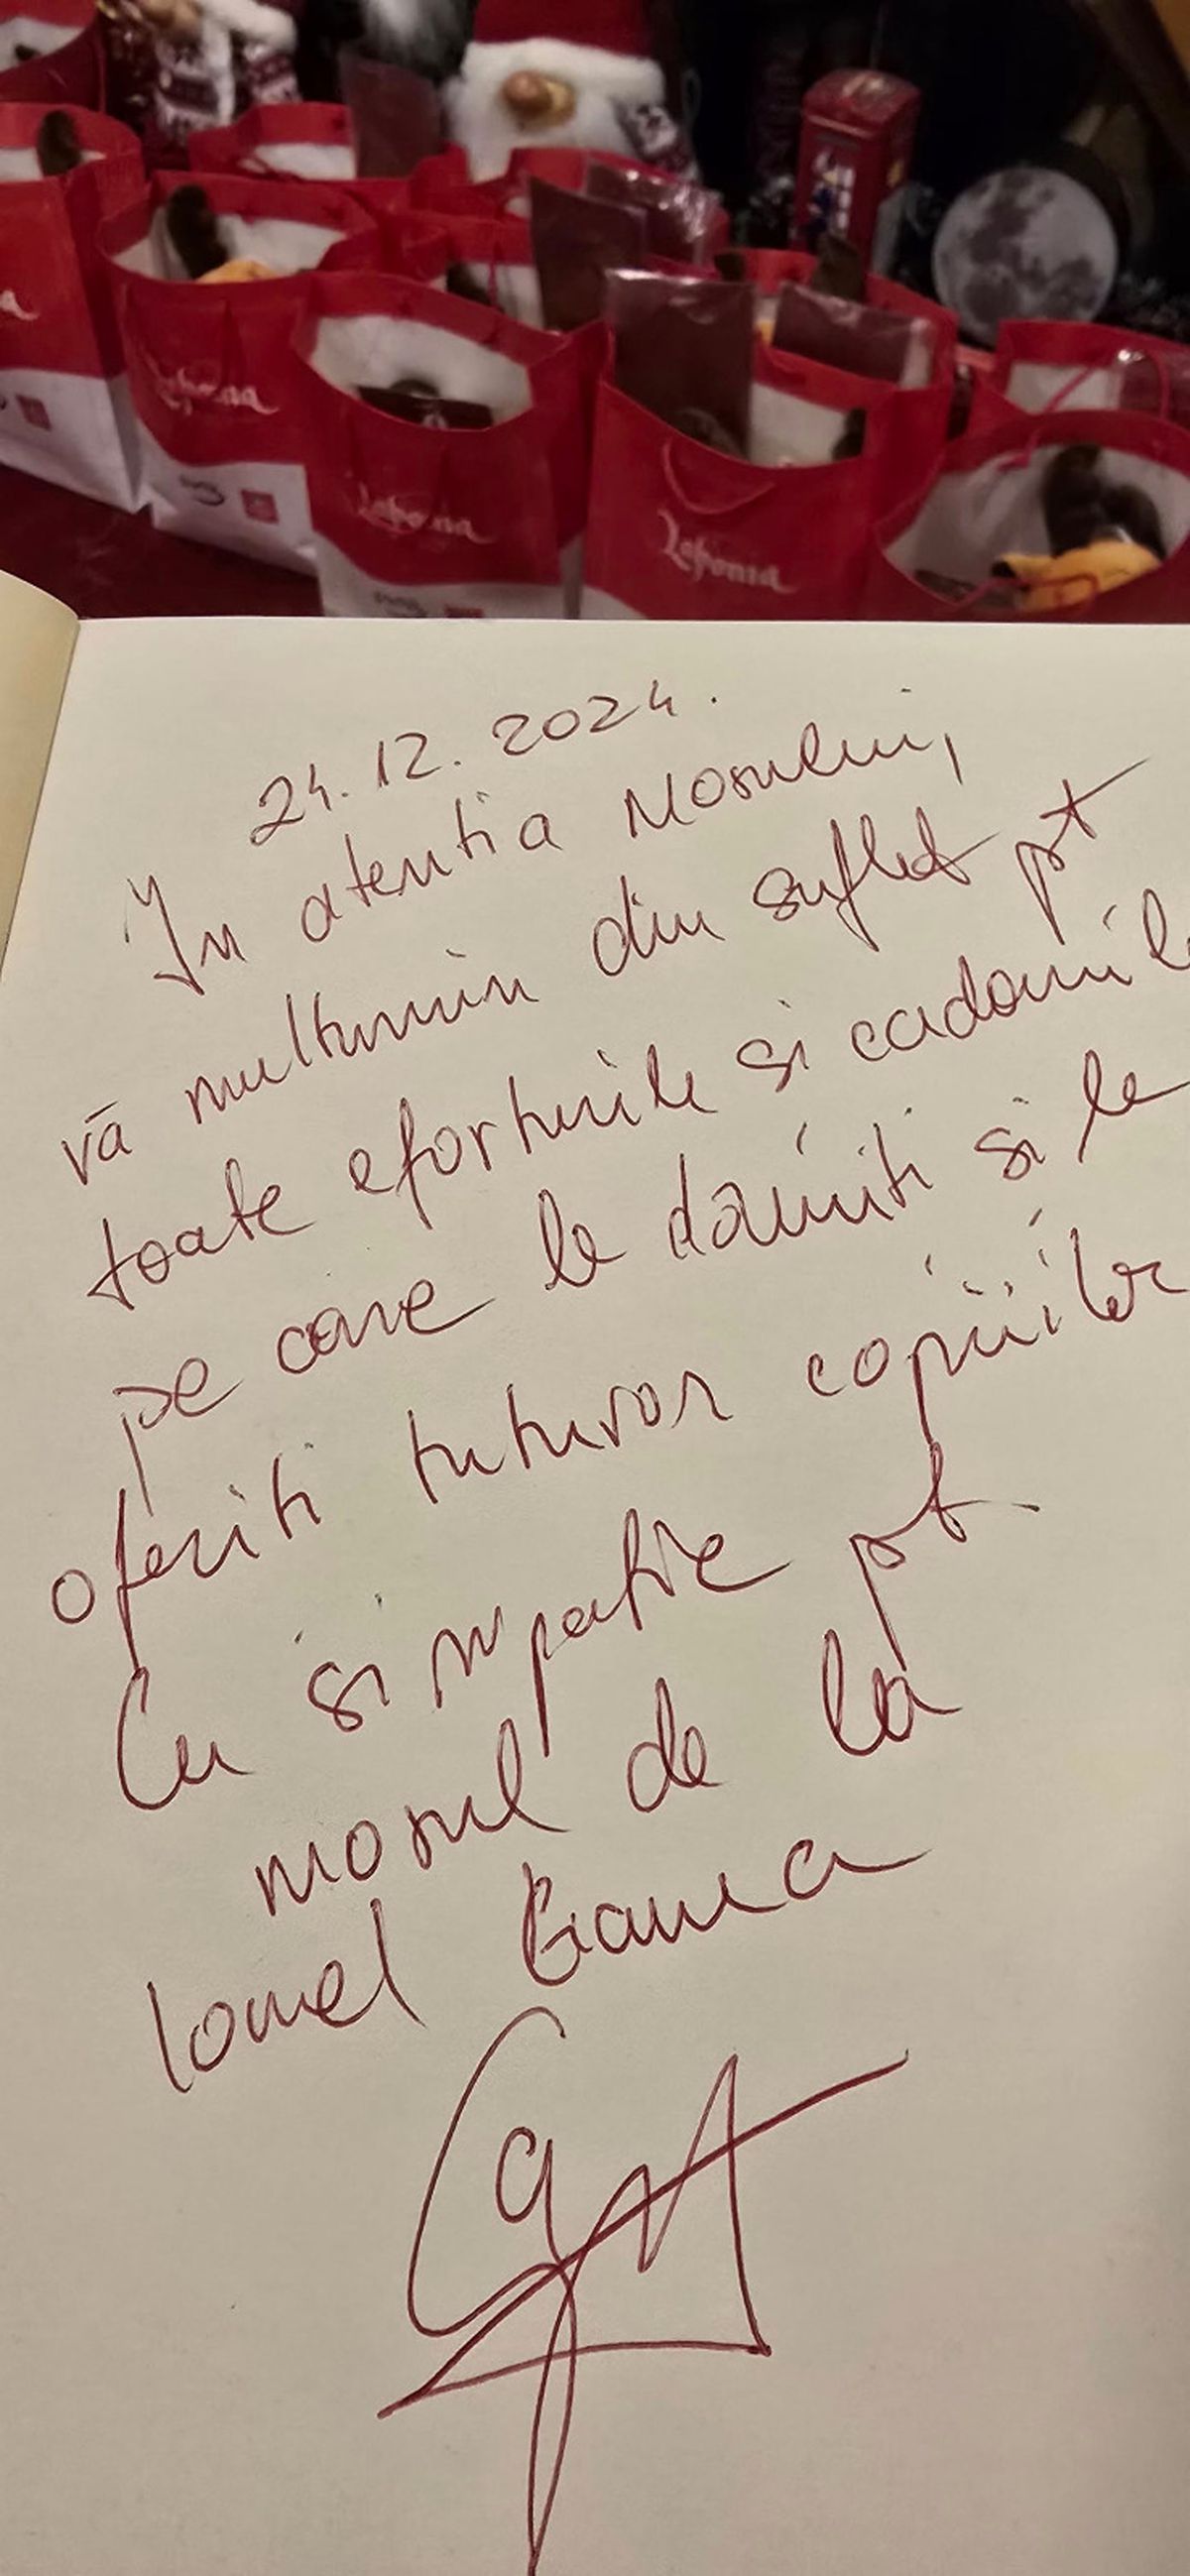 Laponia
Laponia
Laponia
24.12.2024.
In atentia Mosului,
vă multumim din suflet pt
toate eforturile si cadourile
pe care le dăruiti si le
oferiti tuturor copiiilor
Cu simpatie pt.
mosul de la
Ionel Ganea